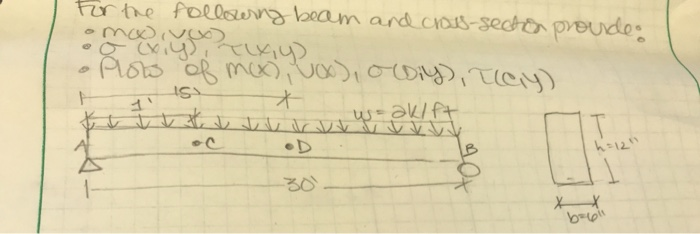 For the following beam and cross-section provide:
• m(x), v(x)
• σ (x,y), τ(x,y)
• Plots of m(x), v(x), σ(D,y), τ(C,y)
15'
w = 2k/ft
A
•C
•D
B
h=12"
30'
b=6"